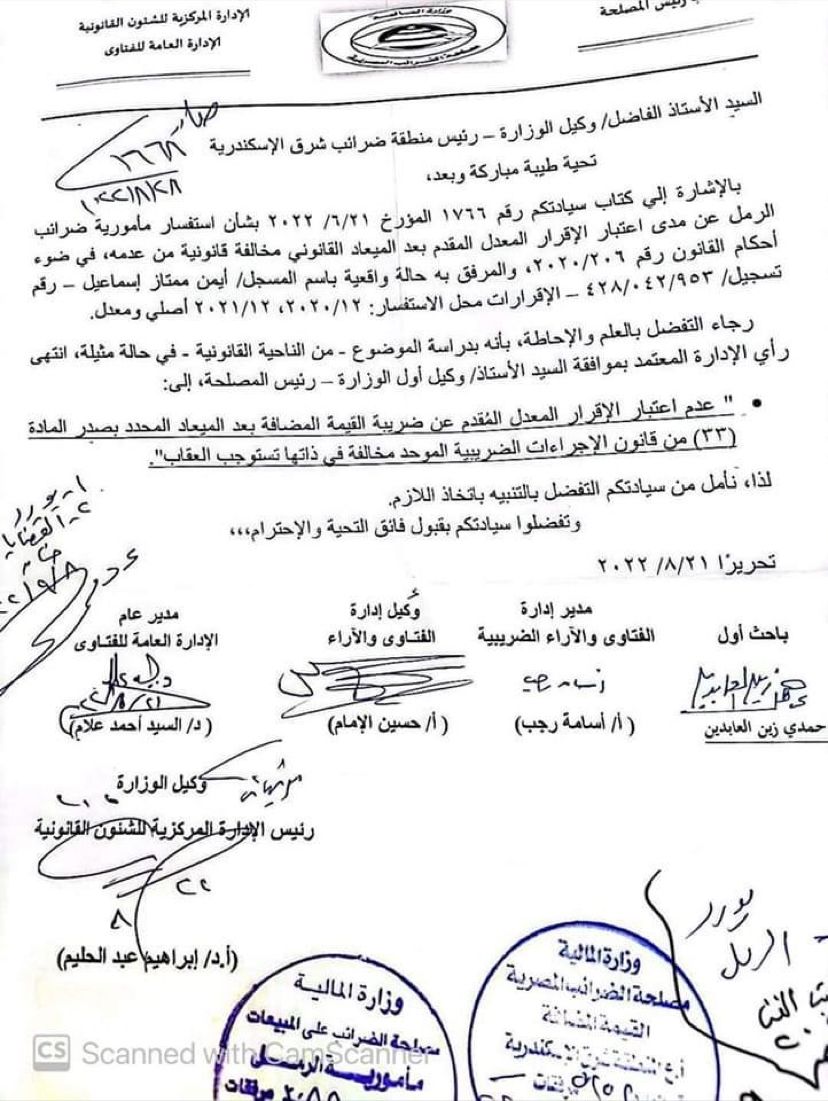 رئيس المصلحة
الإدارة المركزية للشئون القانونية
الإدارة العامة للفتاوى
صادر
١٦٦٨
٢٠٢٢/٨/٢٨
السيد الأستاذ الفاضل/ وكيل الوزارة – رئيس منطقة ضرائب شرق الإسكندرية
تحية طيبة مباركة وبعد،
بالإشارة إلي كتاب سيادتكم رقم ١٧٦٦ المؤرخ ٢٠٢٢ /٦/٢١ بشأن استفسار مأمورية ضرائب
الرمل عن مدى اعتبار الإقرار المعدل المقدم بعد الميعاد القانوني مخالفة قانونية من عدمه، في ضوء
أحكام القانون رقم ٢٠٢٠/٢٠٦، والمرفق به حالة واقعية باسم المسجل/ أيمن ممتاز إسماعيل – رقم
تسجيل/ ٤٢٨/٠٤٢/٩٥٣ – الإقرارات محل الاستفسار: ٢٠٢٠/١٢، ٢٠٢١/١٢ أصلي ومعدل.
رجاء التفضل بالعلم والإحاطة، بأنه بدراسة الموضوع - من الناحية القانونية - في حالة مثيلة، انتهى
رأي الإدارة المعتمد بموافقة السيد الأستاذ/ وكيل أول الوزارة – رئيس المصلحة، إلى:
• " عدم اعتبار الإقرار المعدل المُقدم عن ضريبة القيمة المضافة بعد الميعاد المحدد بصدر المادة
(٣٣) من قانون الإجراءات الضريبية الموحد مخالفة في ذاتها تستوجب العقاب".
لذا، نأمل من سيادتكم التفضل بالتنبيه باتخاذ اللازم.
وتفضلوا سيادتكم بقبول فائق التحية والإحترام،،،
تحريرًا ٢٠٢٢ /٨/٢١
باحث أول
حمدي زين العابدين
مدير إدارة
الفتاوى والآراء الضريبية
(أ/ أسامة رجب)
وكيل إدارة
الفتاوى والآراء
(أ/ حسين الإمام)
مدير عام
الإدارة العامة للفتاوى
(د/ السيد أحمد علام)
وكيل الوزارة
رئيس الإدارة المركزية للشئون القانونية
(أ.د/ إبراهيم عبد الحليم)
يورد
الرمل
وزارة المالية
مصلحة الضرائب المصرية
القيمة المضافة
وزارة المالية
مصلحة الضرائب على المبيعات
مأمورية الرمل
مرفقات
CS Scanned with CamScanner